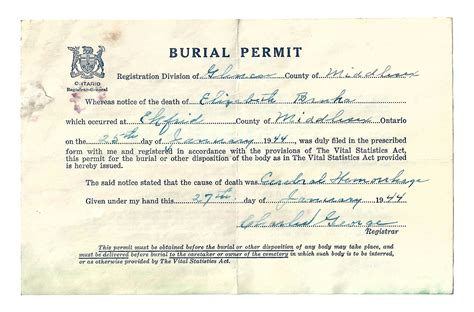 BURIAL PERMIT
ONTARIO
Registrar-General
Registration Division of Glencoe County of Middlesex
Whereas notice of the death of Elizabeth
which occurred at Ekfrid County of Middlesex Ontario
on the 25th day of January 1944, was duly filed in the prescribed
form with me and registered in accordance with the provisions of The Vital Statistics Act,
this permit for the burial or other disposition of the body as in The Vital Statistics Act provided
is hereby issued.
The said notice stated that the cause of death was Cerebral Hemorrhage
Given under my hand this 27th day of January 1944
Charles George
Registrar
This permit must be obtained before the burial or other disposition of any body may take place, and
must be delivered before burial to the caretaker or owner of the cemetery in which such body is to be interred,
or as otherwise provided by The Vital Statistics Act.